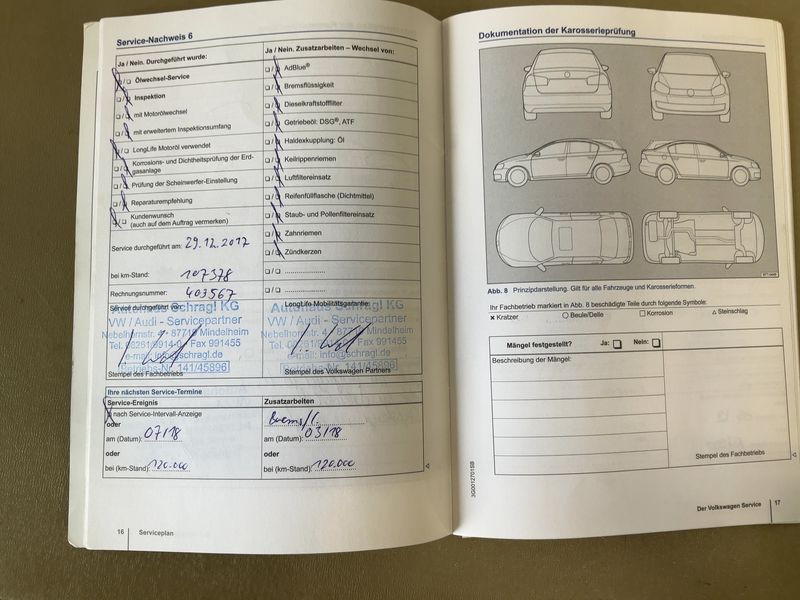 Service-Nachweis 6
Ja / Nein. Durchgeführt wurde:
Ölwechsel-Service
Inspektion
mit Motorölwechsel
mit erweitertem Inspektionsumfang
LongLife Motoröl verwendet
Korrosions- und Dichtheitsprüfung der Erd-
gasanlage
Prüfung der Scheinwerfer-Einstellung
Reparaturempfehlung
Kundenwunsch
(auch auf dem Auftrag vermerken)
Service durchgeführt am: 29.12.2017
bei km-Stand: 107378
Rechnungsnummer: 403567
Service durchgeführt von:
Autohaus Schragl KG
VW / Audi - Servicepartner
Nebelhornstr. 4 - 87719 Mindelheim
Tel. 08261/9914-0 Fax 991455
e-mail: info@schragl.de
Betriebs-Nr. 141/45896
Stempel des Fachbetriebs
Ja / Nein. Zusatzarbeiten – Wechsel von:
AdBlue®
Bremsflüssigkeit
Dieselkraftstofffilter
Getriebeöl: DSG®, ATF
Haldexkupplung: Öl
Keilrippenriemen
Luftfiltereinsatz
Reifenfüllflasche (Dichtmittel)
Staub- und Pollenfiltereinsatz
Zahnriemen
Zündkerzen
LongLife-Mobilitätsgarantie:
Autohaus Schragl KG
VW / Audi - Servicepartner
Nebelhornstr. 4 - 87719 Mindelheim
Tel. Fax 991455
e-mail: info@schragl.de
141/45896
Stempel des Volkswagen Partners
Ihre nächsten Service-Termine
Service-Ereignis
nach Service-Intervall-Anzeige
oder
am (Datum): 07/18
oder
bei (km-Stand): 120.000
Zusatzarbeiten
am (Datum): 03/18
oder
bei (km-Stand): 120.000
16 Serviceplan
Dokumentation der Karosserieprüfung
Abb. 8 Prinzipdarstellung. Gilt für alle Fahrzeuge und Karosserieformen.
Ihr Fachbetrieb markiert in Abb. 8 beschädigte Teile durch folgende Symbole:
x Kratzer ○ Beule/Delle □ Korrosion △ Steinschlag
Mängel festgestellt? Ja: □ Nein: □
Beschreibung der Mängel:
Stempel des Fachbetriebs
3G0012701SB
Der Volkswagen Service 17